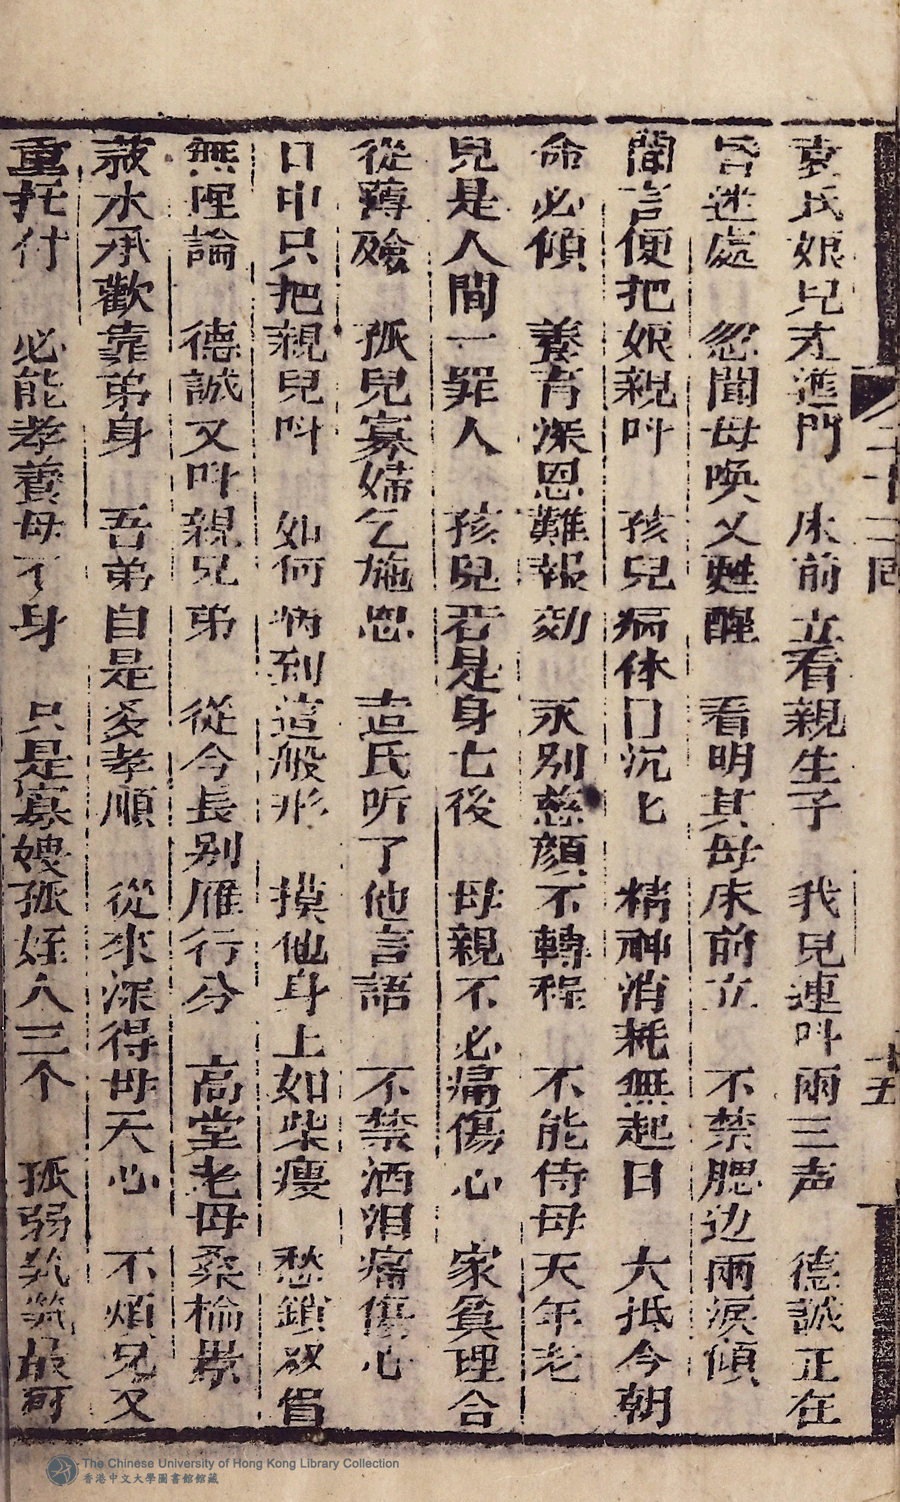 二十二回
十五
袁氏娘兒才進門　床前立看親生子　我兒連呌兩三声　德誠正在
昏迷處　忽聞母喚又甦醒　看明其母床前立　不禁腮边兩淚傾
聞言便把娘親呌　孩兒病体日沉匕　精神消耗無起日　大抵今朝
命必傾　養育深恩難報効　永别慈顏不轉程　不能侍母天年老
兒是人間一罪人　孩兒若是身亡後　母親不必痛傷心　家貧理合
從薄殮　孤兒寡婦乞施恩　袁氏听了他言語　不禁洒泪痛傷心
口中只把親兒呌　如何病到這般形　摸他身上如柴瘦　愁鎖双眉
無陧論　德誠又呌親兄弟　從今長别雁行分　高堂老母桑榆景
菽水承歡靠弟身　吾弟自是多孝順　從來深得母天心　不煩兄又
重托付　必能孝養母了身　只是寡嫂孤姪人三个　孤弱煢煢最可
The Chinese University of Hong Kong Library Collection
香港中文大學圖書館館藏